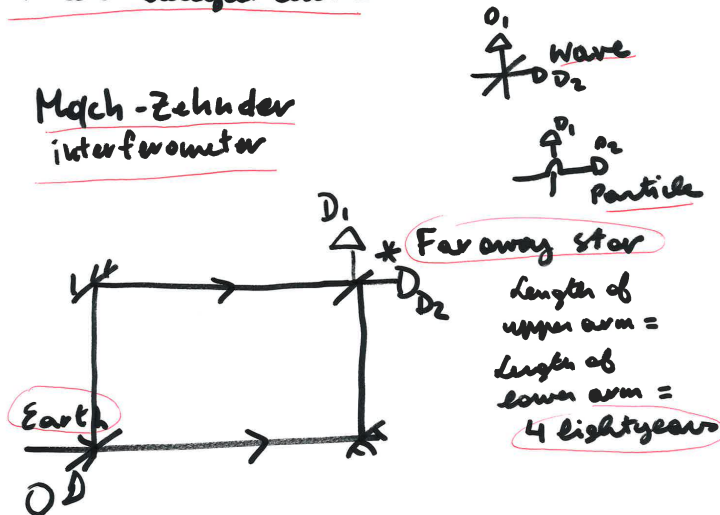 Mach-Zehnder
interferometer
D1
D2
Wave
D1
D2
Particle
D1
D2
Far away star
Length of
upper arm =
Length of
lower arm =
4 lightyears
Earth